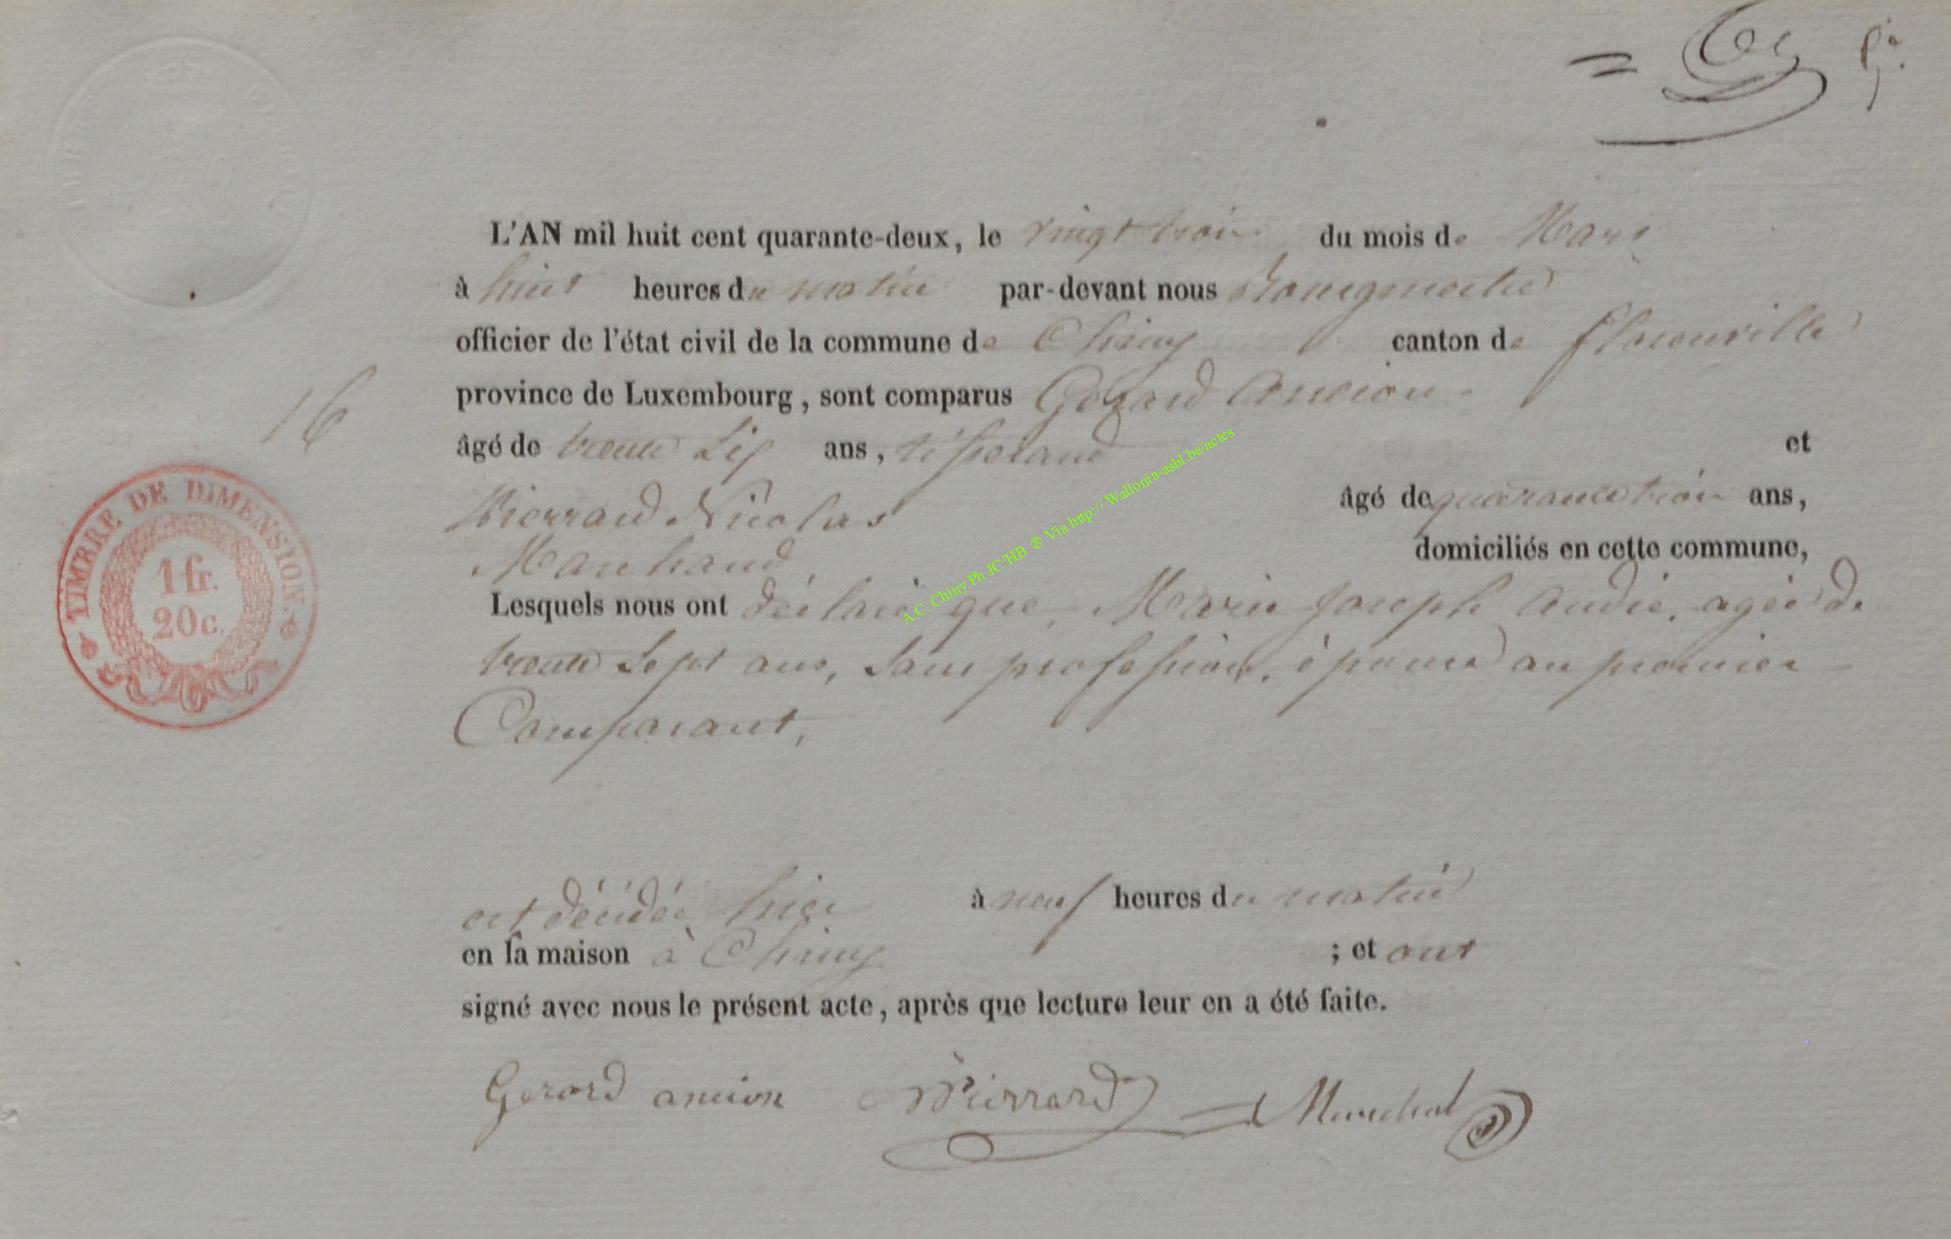 L'AN mil huit cent quarante-deux, le vingt trois du mois de Mars
à huit heures du matin par-devant nous Bourgmestre
officier de l'état civil de la commune de Chiny canton de florenville
province de Luxembourg, sont comparus Gérard Ancion
16
âgé de trente Six ans, tisserand et
Pierrard Nicolas âgé de quarante trois ans,
Marchand domiciliés en cette commune,
Lesquels nous ont déclaré que, Marie Joseph Andié, agée de
trente Sept ans, Sans profession, épouse au premier
Comparant,
est décédée hier à neuf heures du matin
en sa maison à Chiny ; et ont
signé avec nous le présent acte, après que lecture leur en a été faite.
Gerard ancion Pierrard Marechal
TIMBRE DE DIMENSION.
1 fr.
20 c.
A.C. Chiny Ph JC/HB ® Via http:// Wallonia-asbl.be/actes